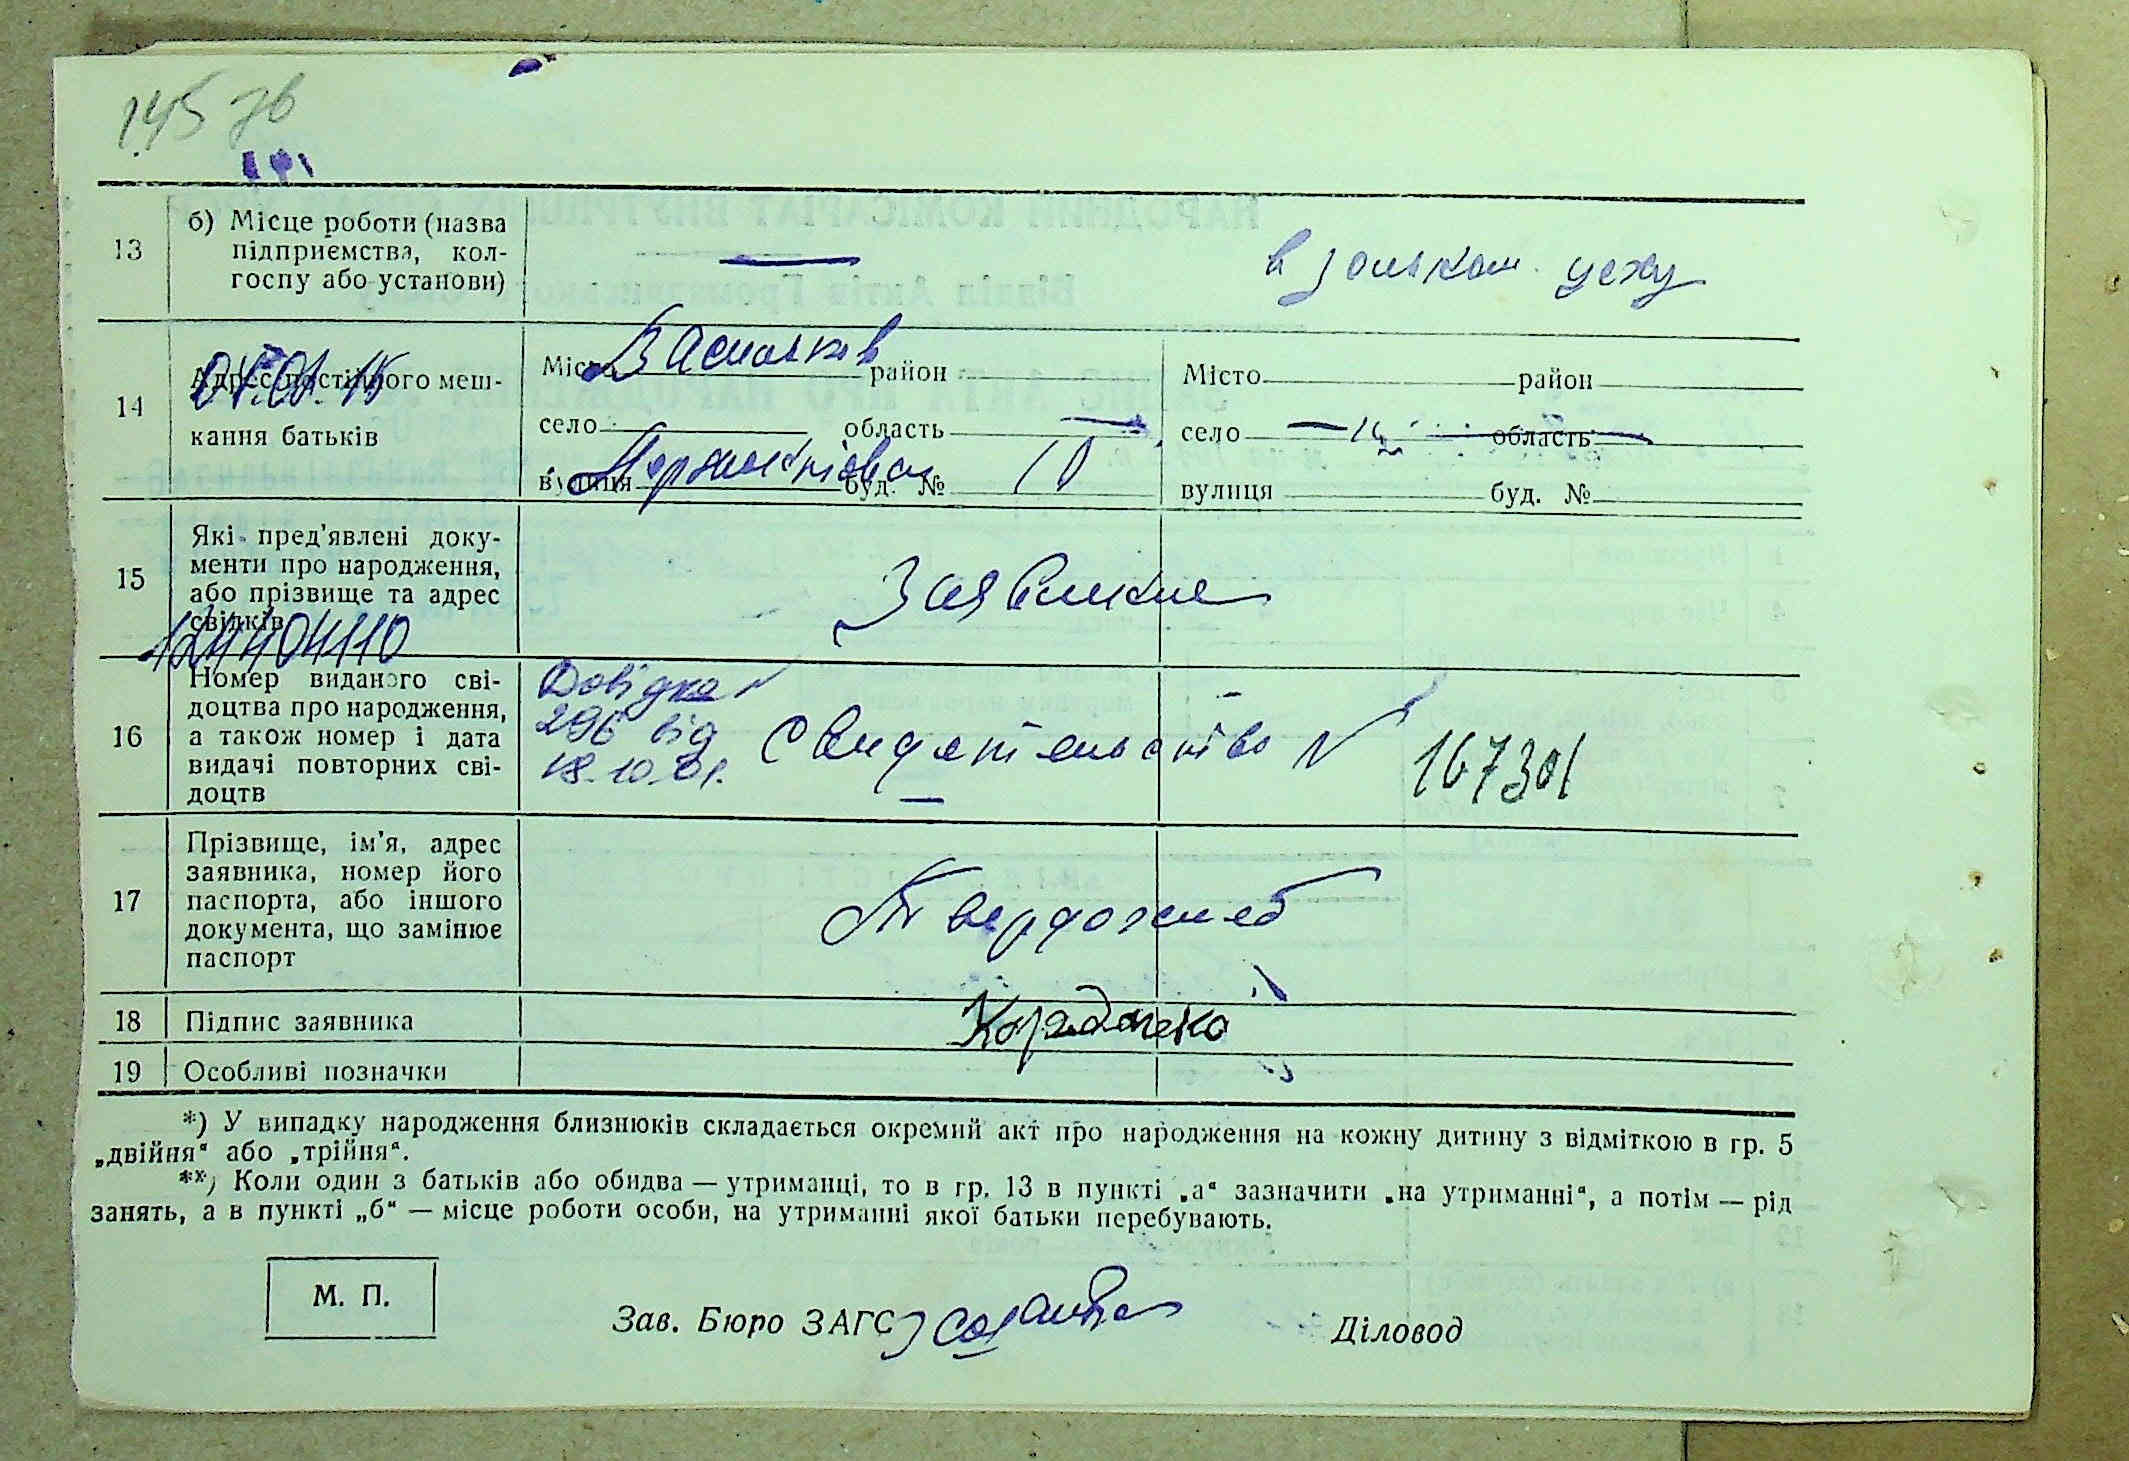 145 зв
13
б) Місце роботи (назва
підприємства, кол-
госпу або установи)
в цеху
14
Адрес постійного меш-
кання батьків
Місто Васильків район
село область —
вулиця буд. № 10
Місто район
село — область —
вулиця буд. №
15
Які пред'явлені доку-
менти про народження,
або прізвище та адрес
свідків
16
Номер виданого сві-
доцтва про народження,
а також номер і дата
видачі повторних сві-
доцтв
Довідка
296 від
18.10.01.
Свидетельство № 167301
17
Прізвище, ім'я, адрес
заявника, номер його
паспорта, або іншого
документа, що замінює
паспорт
Твердохлеб
18
Підпис заявника
19
Особливі позначки
*) У випадку народження близнюків складається окремий акт про народження на кожну дитину з відміткою в гр. 5
„двійня" або „трійня".
**) Коли один з батьків або обидва — утриманці, то в гр. 13 в пункті „а" зазначити „на утриманні", а потім — рід
занять, а в пункті „б" — місце роботи особи, на утриманні якої батьки перебувають.
М. П.
Зав. Бюро ЗАГС
Діловод